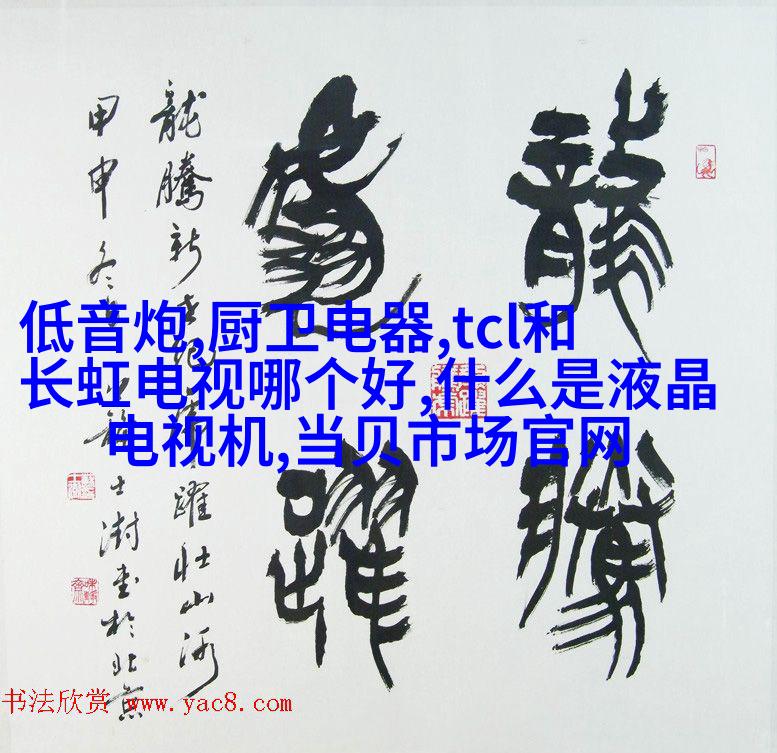 龍騰
虎躍
龍騰新世紀虎躍壯山河
甲申冬 士澍書於北京
低音炮,厨卫电器,tcl和
长虹电视哪个好,什么是液晶
电视机,当贝市场官网
书法欣赏 www.yac8.com